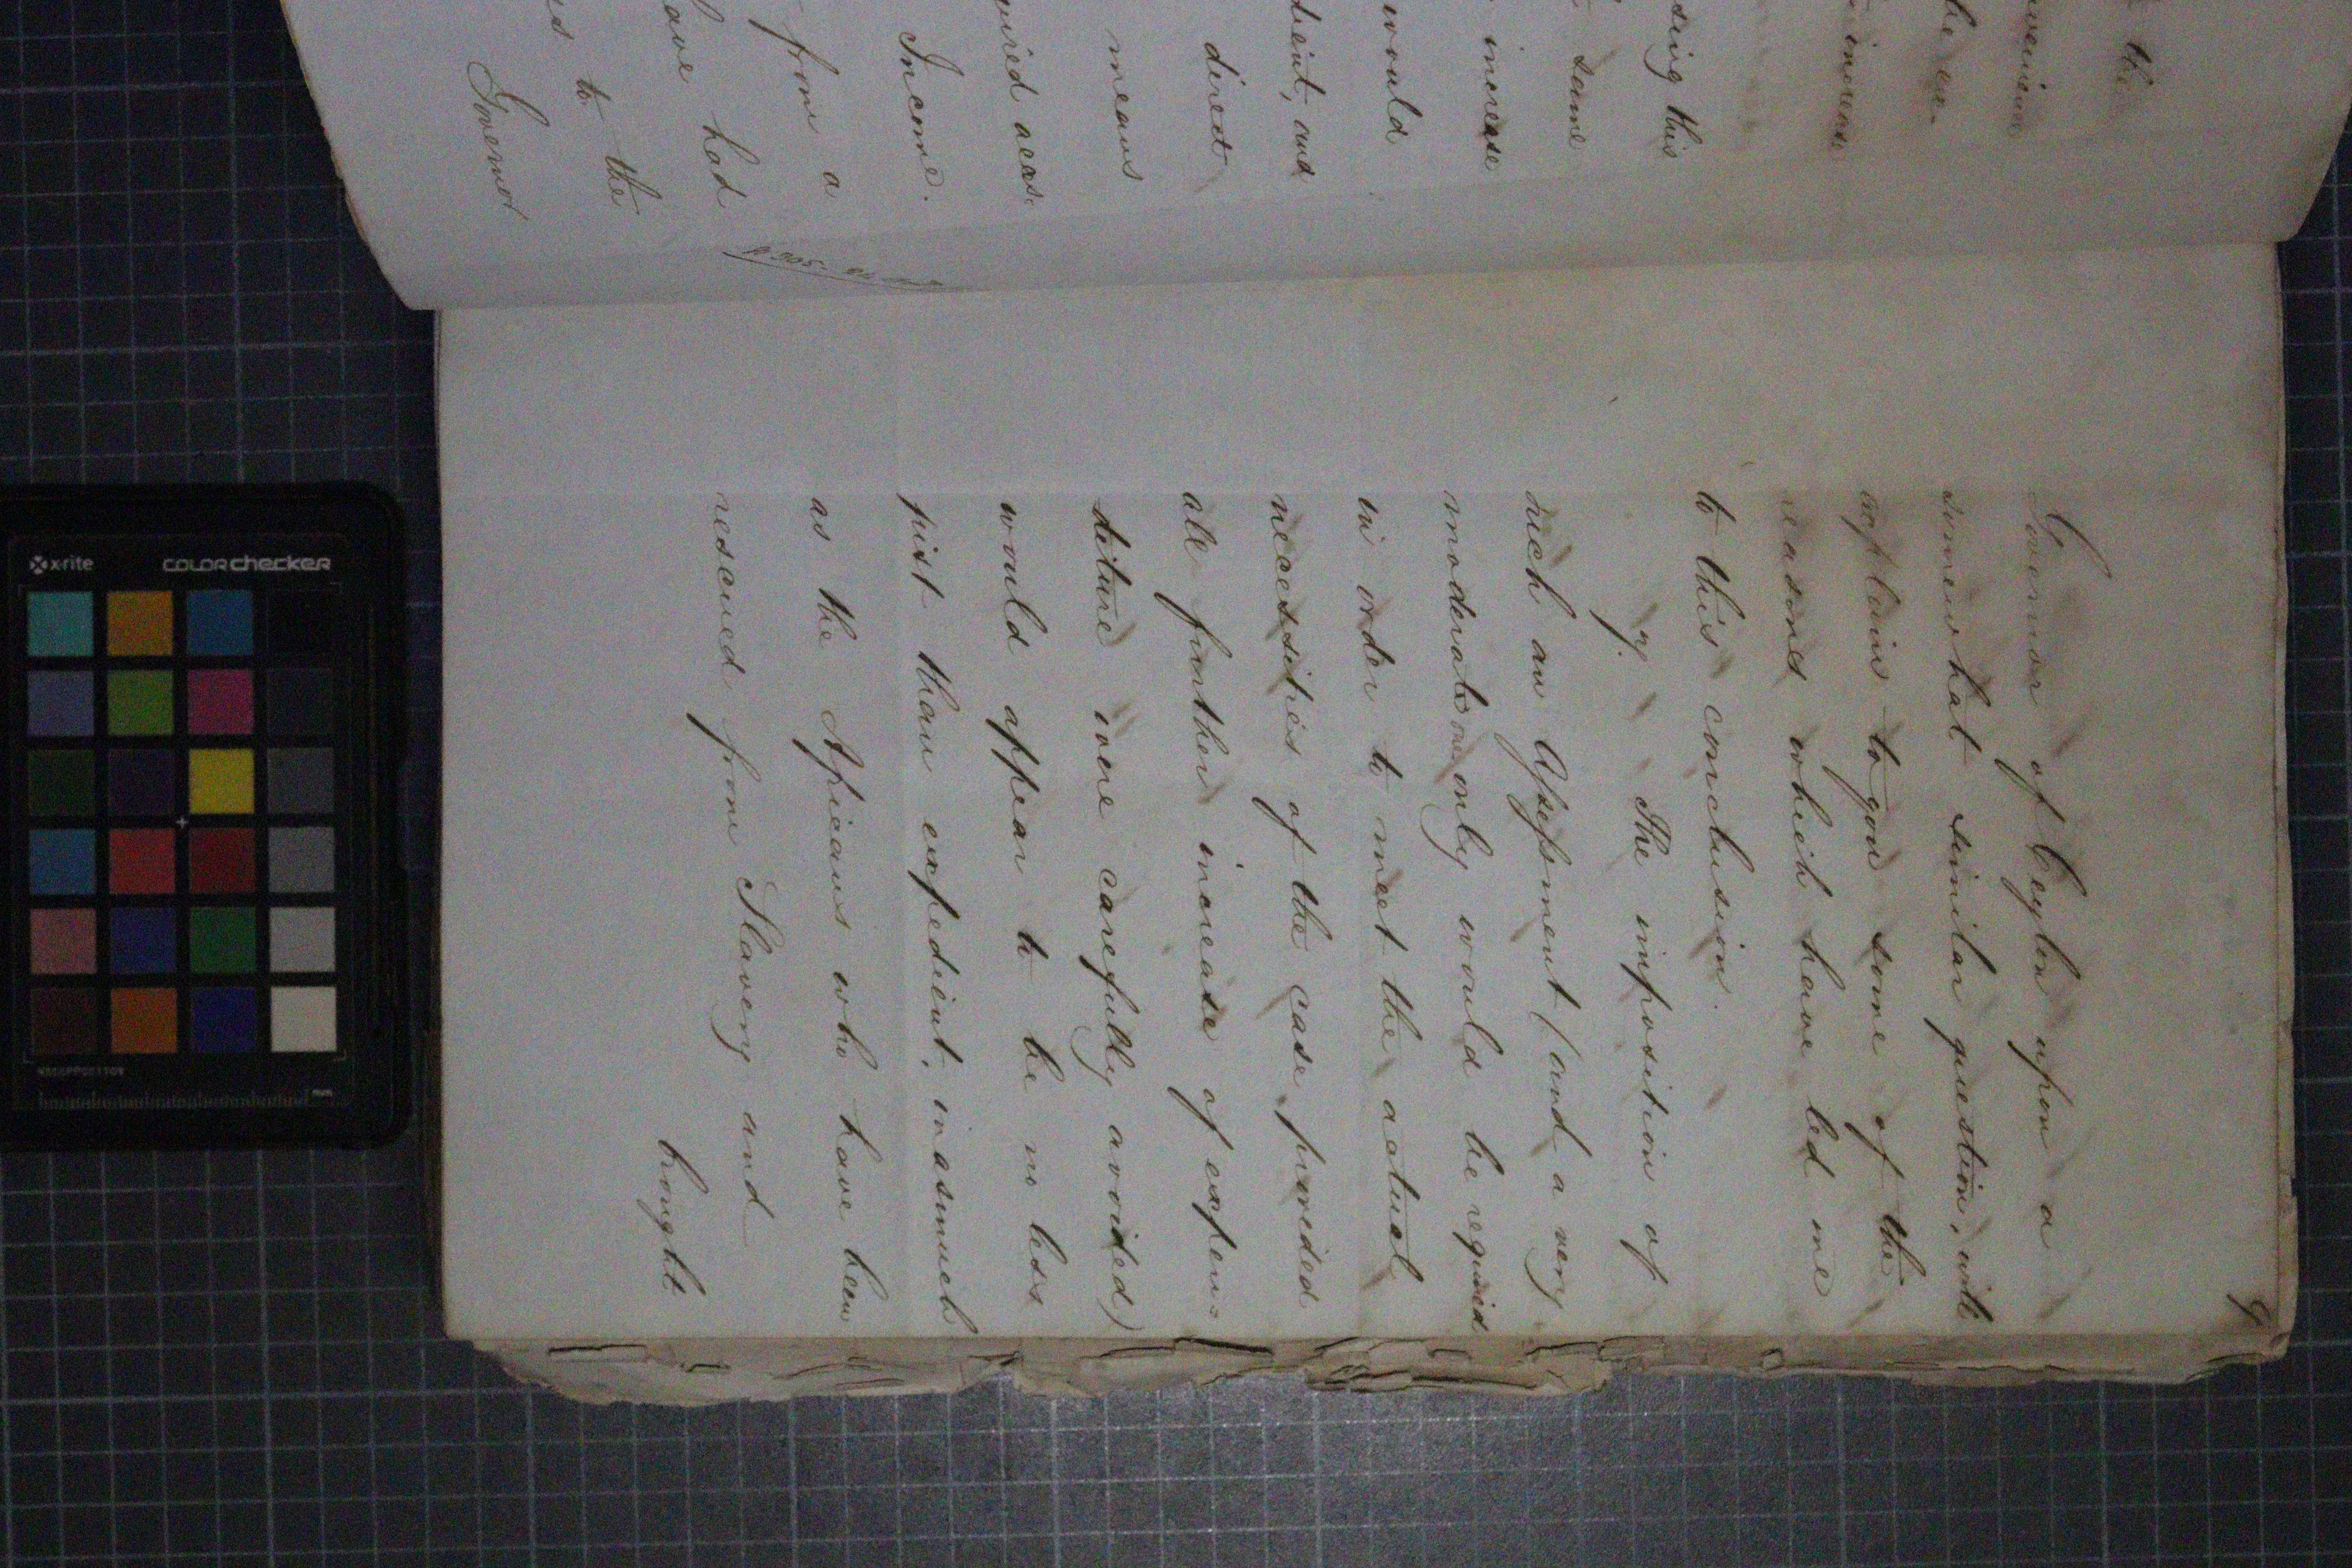 the
increase
sing this
same
increase
would
dient, and
direct
means
quired acas.
Income.
from a
ave had
es to the
Governor
9
Governor of Ceylon upon a
somewhat similar question, will
explain to you some of the
reasons which have led me
to this conclusion.
9. The imposition of
such an Assessment (and a very
moderate one only would be required
in order to meet the actual
necessities of the case, provided
all further increase of expen=
diture were carefully avoided)
would appear to be no less
just than expedient, inasmuch
as the Africans who have been
rescued from Slavery and
brought
x-rite
colorchecker
mm